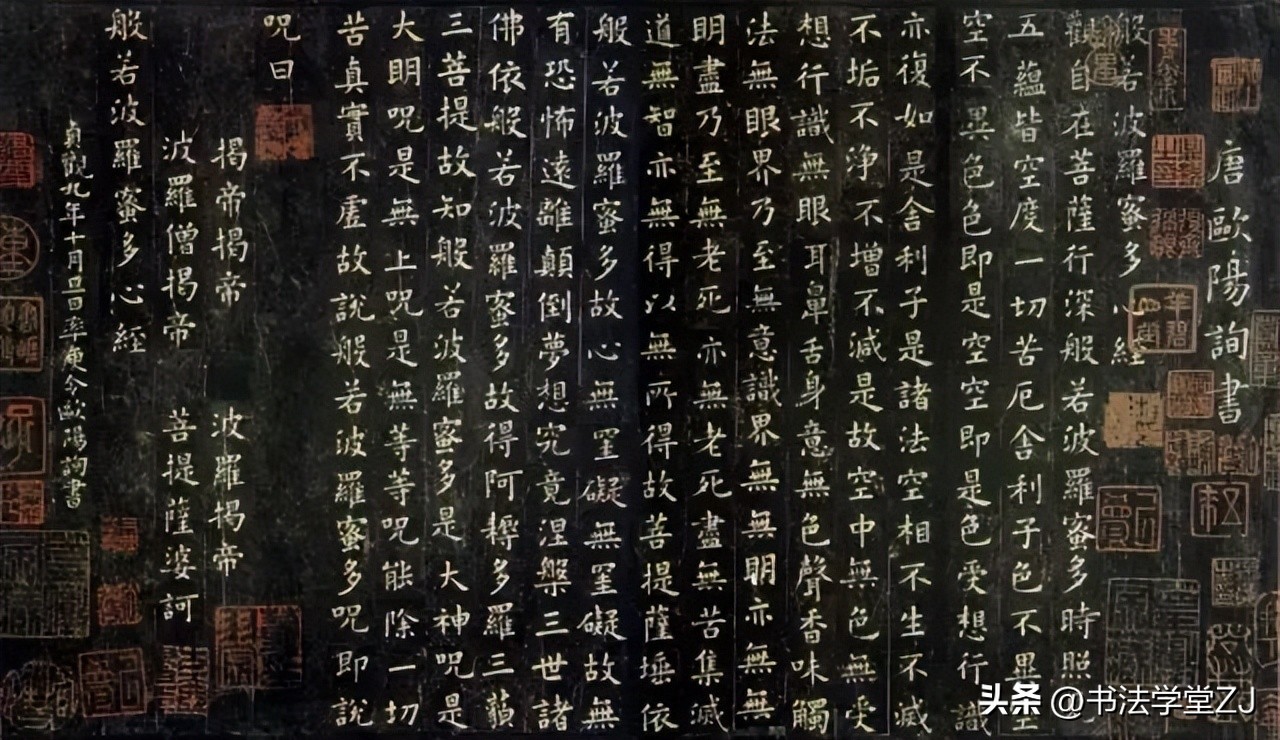 唐歐陽詢書
般若波羅蜜多心經
觀自在菩薩行深般若波羅蜜多時照
五蘊皆空度一切苦厄舍利子色不異空
空不異色色即是空空即是色受想行識
亦復如是舍利子是諸法空相不生不滅
不垢不淨不增不減是故空中無色無受
想行識無眼耳鼻舌身意無色聲香味觸
法無眼界乃至無意識界無無明亦無無
明盡乃至無老死亦無老死盡無苦集滅
道無智亦無得以無所得故菩提薩埵依
般若波羅蜜多故心無罣礙無罣礙故無
有恐怖遠離顛倒夢想究竟涅槃三世諸
佛依般若波羅蜜多故得阿耨多羅三藐
三菩提故知般若波羅蜜多是大神咒是
大明咒是無上咒是無等等咒能除一切
苦真實不虛故說般若波羅蜜多咒即說
咒曰
揭帝揭帝 波羅揭帝
波羅僧揭帝 菩提薩婆訶
般若波羅蜜多心經
貞觀九年十月旦日率更令歐陽詢書
头条 @书法学堂ZJ